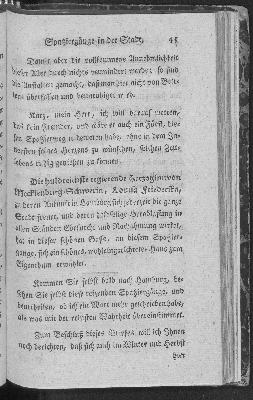 Spaziergänge in der Stadt. 45
Damit aber die vollkommene Annehmlichkeit
dieser Allee durch nichts vermindert werde: so sind
die Anstalten gemacht, daß man hier nicht von Bett-
lern überfallen und beunruhiget wird.
Kurz, mein Herr, ich will darauf wetten,
daß kein Fremder, und wäre er auch ein Fürst, die-
sen Spazierweg je betreten habe, ohne in dem In-
nersten seines Herzens zu wünschen, selchen Zeit
lebens ruhig genießen zu können.
Die huldreichste regierende Herzoginn von
Mecklenburg-Schwerin, Louisa Friederika,
deren Ankunft in Hamburg sich jederzeit die ganze
Stadt freuet, und deren huldselige Herablassung in
allen Ständen Ehrfurcht und Nachahmung wirket,
hat in dieser schönen Gegend, an diesem Spazier-
gange, sich ein schönes, wohleingerichtetes Haus zum
Eigenthum erwählet.
Kommen Sie selbst bald nach Hamburg, be-
sehen Sie selbst diese reizenden Spaziergänge, und
beurtheilen, ob ich ein Wort mehr geschrieben habe,
als was mit der reinsten Wahrheit übereinstimmet.
Zum Beschluß dieses Briefes will ich Ihnen
noch berichten, daß sich auch im Winter und Herbst